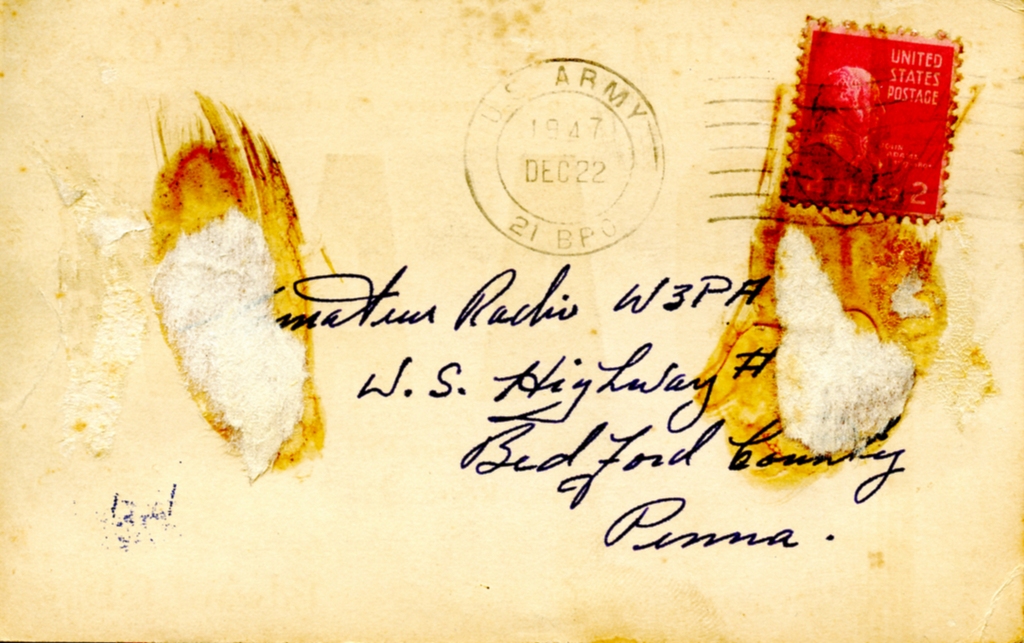 U.S. ARMY
1947
DEC 22
21 BPO
UNITED
STATES
POSTAGE
2
Amateur Radio W3PA
U.S. Highway #
Bedford County
Penna.